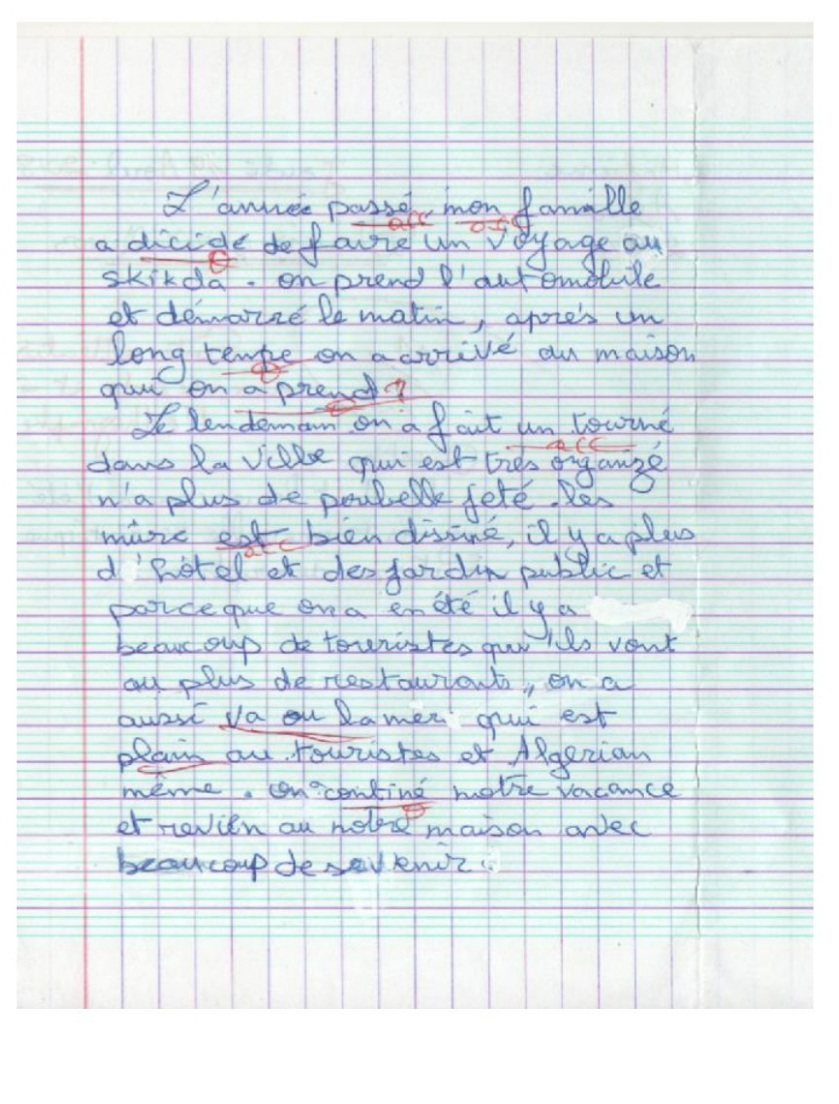 L'année passé mon famille
a dicidé de faire un voyage au
skikda. on prend l'automobile
et démarré le matin, aprés un
long tempe on a arrivé au maison
qui on a prend ?
Le lendemain on a fait un tourné
dans la ville qui est très organizé
n'a plus de poubelle jeté. les
mûrs est bien dissiné, il y a plus
d'hôtel et des jardin public et
parceque on a en été il y a
beaucoup de touristes qui ils vont
au plus de restaurants, on a
aussi va au la mer qui est
plain au touristes et Algerian
même. on continé notre vacance
et revien au notre maison avec
beaucoup de sovenir.